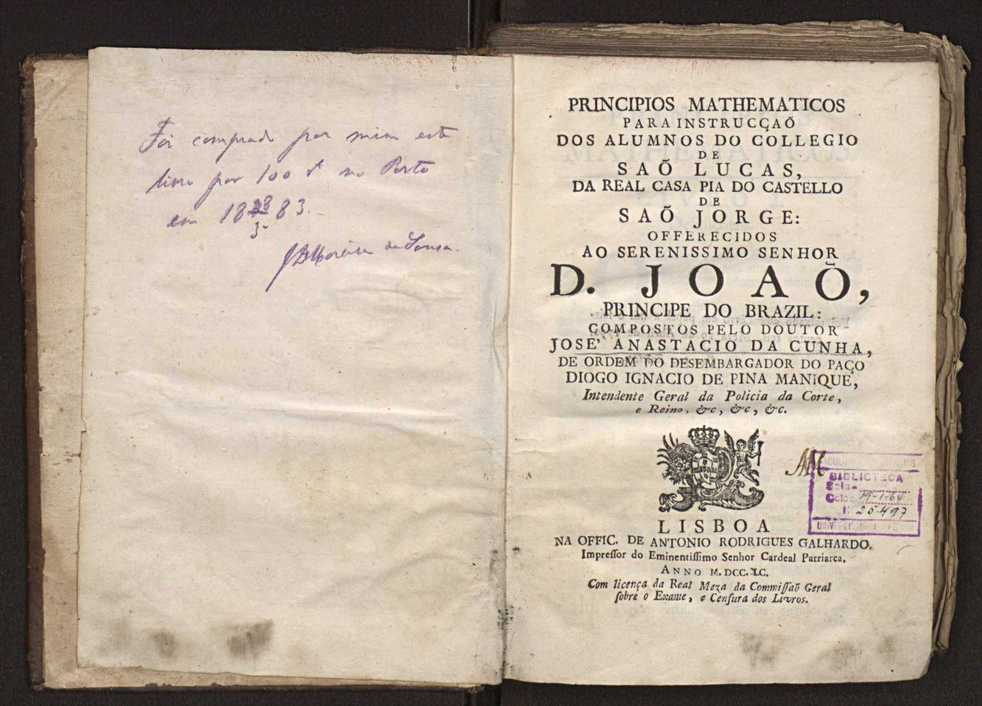 Foi comprado por mim este
livro por 100 rs no Porto
em 18 83.
de Sousa.
PRINCIPIOS MATHEMATICOS
PARA INSTRUCÇAÕ
DOS ALUMNOS DO COLLEGIO
DE
SAÕ LUCAS,
DA REAL CASA PIA DO CASTELLO
DE
SAÕ JORGE:
OFFERECIDOS
AO SERENISSIMO SENHOR
D. JOAÕ,
PRINCIPE DO BRAZIL:
COMPOSTOS PELO DOUTOR
JOSE' ANASTACIO DA CUNHA,
DE ORDEM DO DESEMBARGADOR DO PAÇO
DIOGO IGNACIO DE PINA MANIQUE,
Intendente Geral da Policia da Corte,
e Reino, &c, &c, &c.
BIBLIOTECA
Sala
25497
LISBOA
NA OFFIC. DE ANTONIO RODRIGUES GALHARDO,
Impreſſor do Eminentiſſimo Senhor Cardeal Patriarca.
ANNO M. DCC. XC.
Com licença da Real Meza da Commiſſaõ Geral
ſobre o Exame, e Cenſura dos Livros.